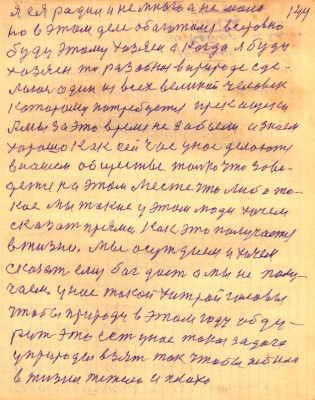 я ея ради и не много а не мало 144
но в этом деле обогатом все ровно
буду этому хозяен а когда я буду
хозяен то разобью в природе сде
лают один из всех великой человек
которому потребуется
Амы за это время не забыли а знаем
хорошо как сей час у нас делают
в нашем обществе только что заве
дети на этом месте это либо та
кое мы такие у этом люди хочем
сказать прямо как это получается
в жизни. мы осуждаем и хочем
сказать ему бог дает а мы не полу
чаем, у нас такой хитрой головы
чтобы природу в этом году обду
рить это есть у нас така задача
у природы взять так чтобы не было
в жизни тяжело и плохо